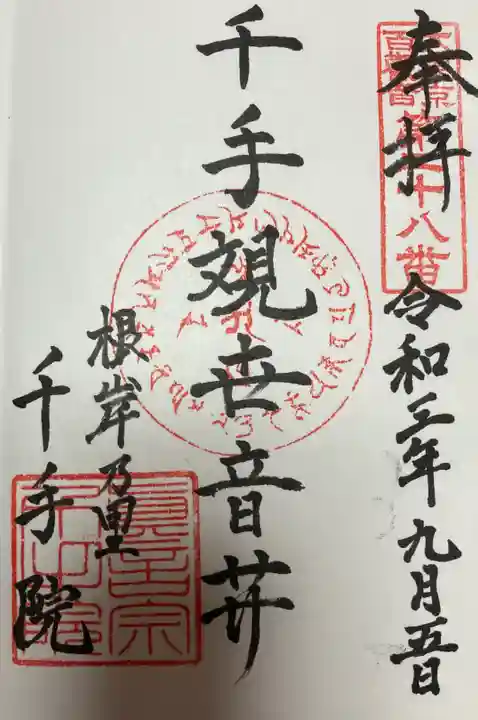 奉拝
令和三年九月五日
千手観世音𦬇
根岸乃里
千手院
十八番